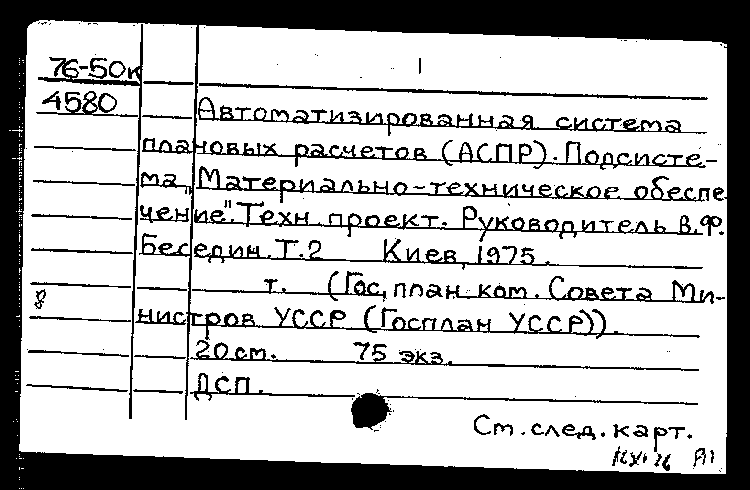 76-50к
4580
Автоматизированная система
плановых расчетов (АСПР). Подсисте-
ма „Материально-техническое обеспе
чение". Техн. проект. Руководитель В.Ф.
Беседин. Т.2 Киев, 1975.
т. (Гос. план. ком. Совета Ми-
нистров УССР (Госплан УССР)).
20 см. 75 экз.
ДСП.
Ст. след. карт.